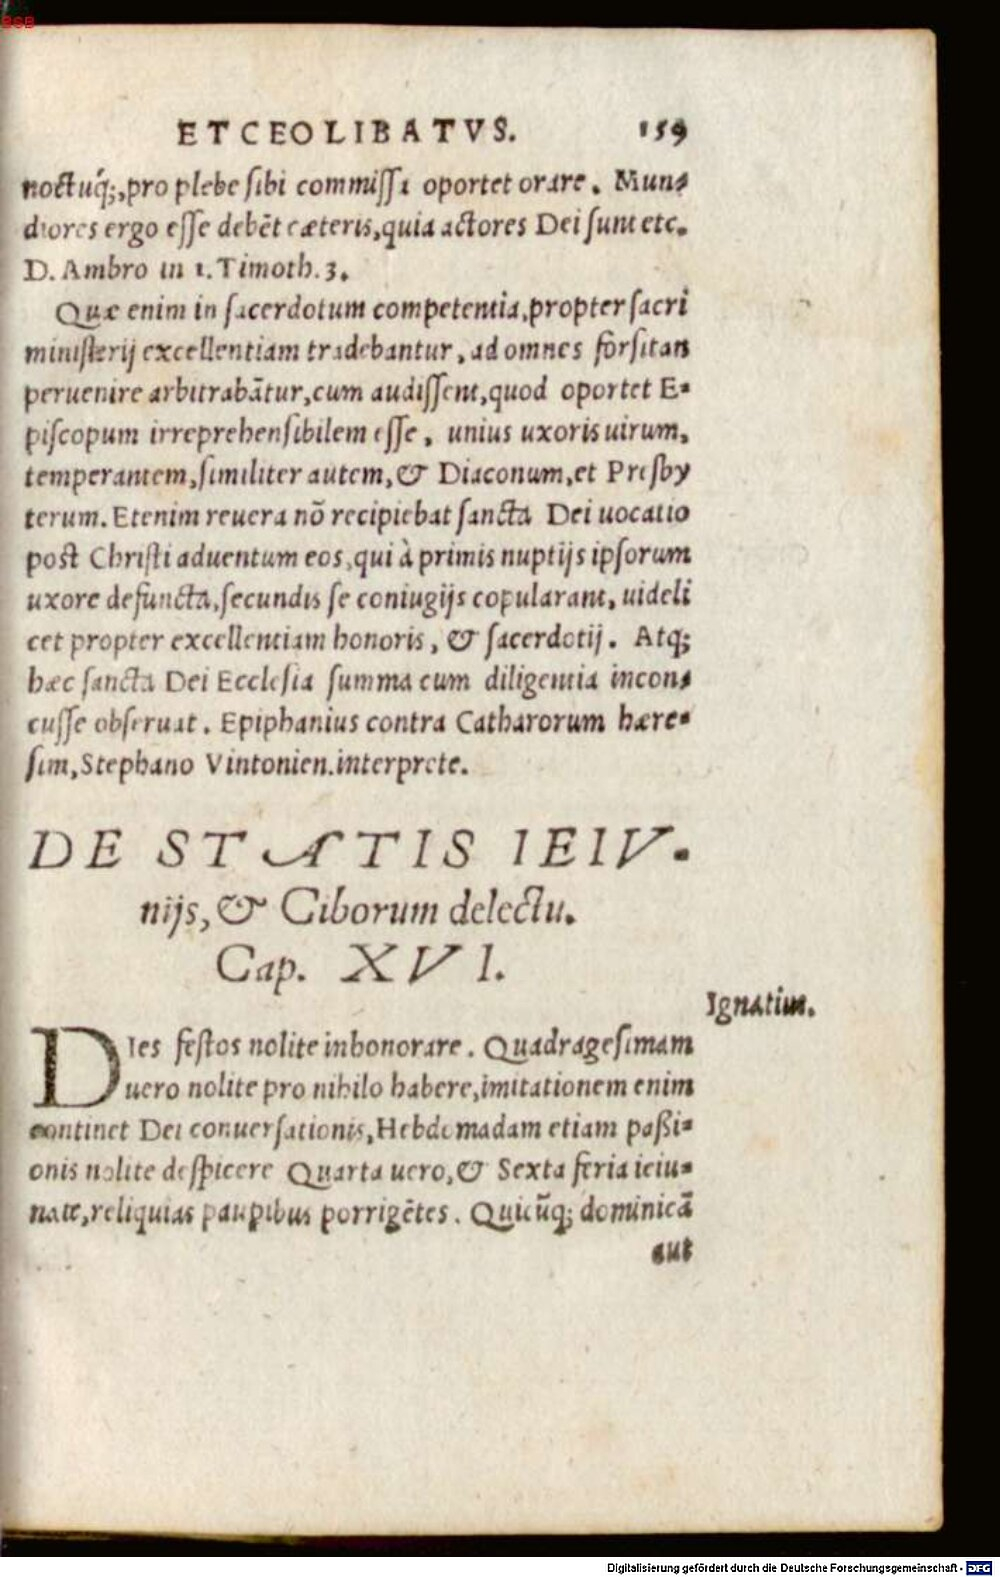 BSB
ET CEOLIBATVS. 159
noctuq́;, pro plebe ſibi commiſſa oportet orare. Mun-
diores ergo eſſe debẽt cæteris, quia actores Dei ſunt etc.
D. Ambro in 1. Timoth. 3.
Quæ enim in ſacerdotum competentia, propter ſacri
miniſterij excellentiam tradebantur, ad omnes forſitan
peruenire arbitrabãtur, cum audiſſent, quod oportet E-
piſcopum irreprehenſibilem eſſe, unius uxoris uirum,
temperantem, ſimiliter autem, & Diaconum, et Preſby
terum. Etenim reuera nõ recipiebat ſancta Dei uocatio
poſt Chriſti aduentum eos, qui à primis nuptijs ipſorum
uxore defuncta, ſecundis ſe coniugijs copularant, uideli
cet propter excellentiam honoris, & ſacerdotij. Atq;
hæc ſancta Dei Eccleſia ſumma cum diligentia incon-
cuſſe obſeruat. Epiphanius contra Catharorum hære-
ſim, Stephano Vintonien. interprete.
DE STATIS IEIV-
nijs, & Ciborum delectu.
Cap. XVI.
Ignatius.
DIes feſtos nolite inhonorare. Quadrageſimam
uero nolite pro nihilo habere, imitationem enim
continet Dei conuerſationis, Hebdomadam etiam paßi-
onis nolite deſpicere Quarta uero, & Sexta feria ieiu-
nate, reliquias paupibus porrigẽtes. Quicũq; dominicã
aut
Digitalisierung gefördert durch die Deutsche Forschungsgemeinschaft - DFG